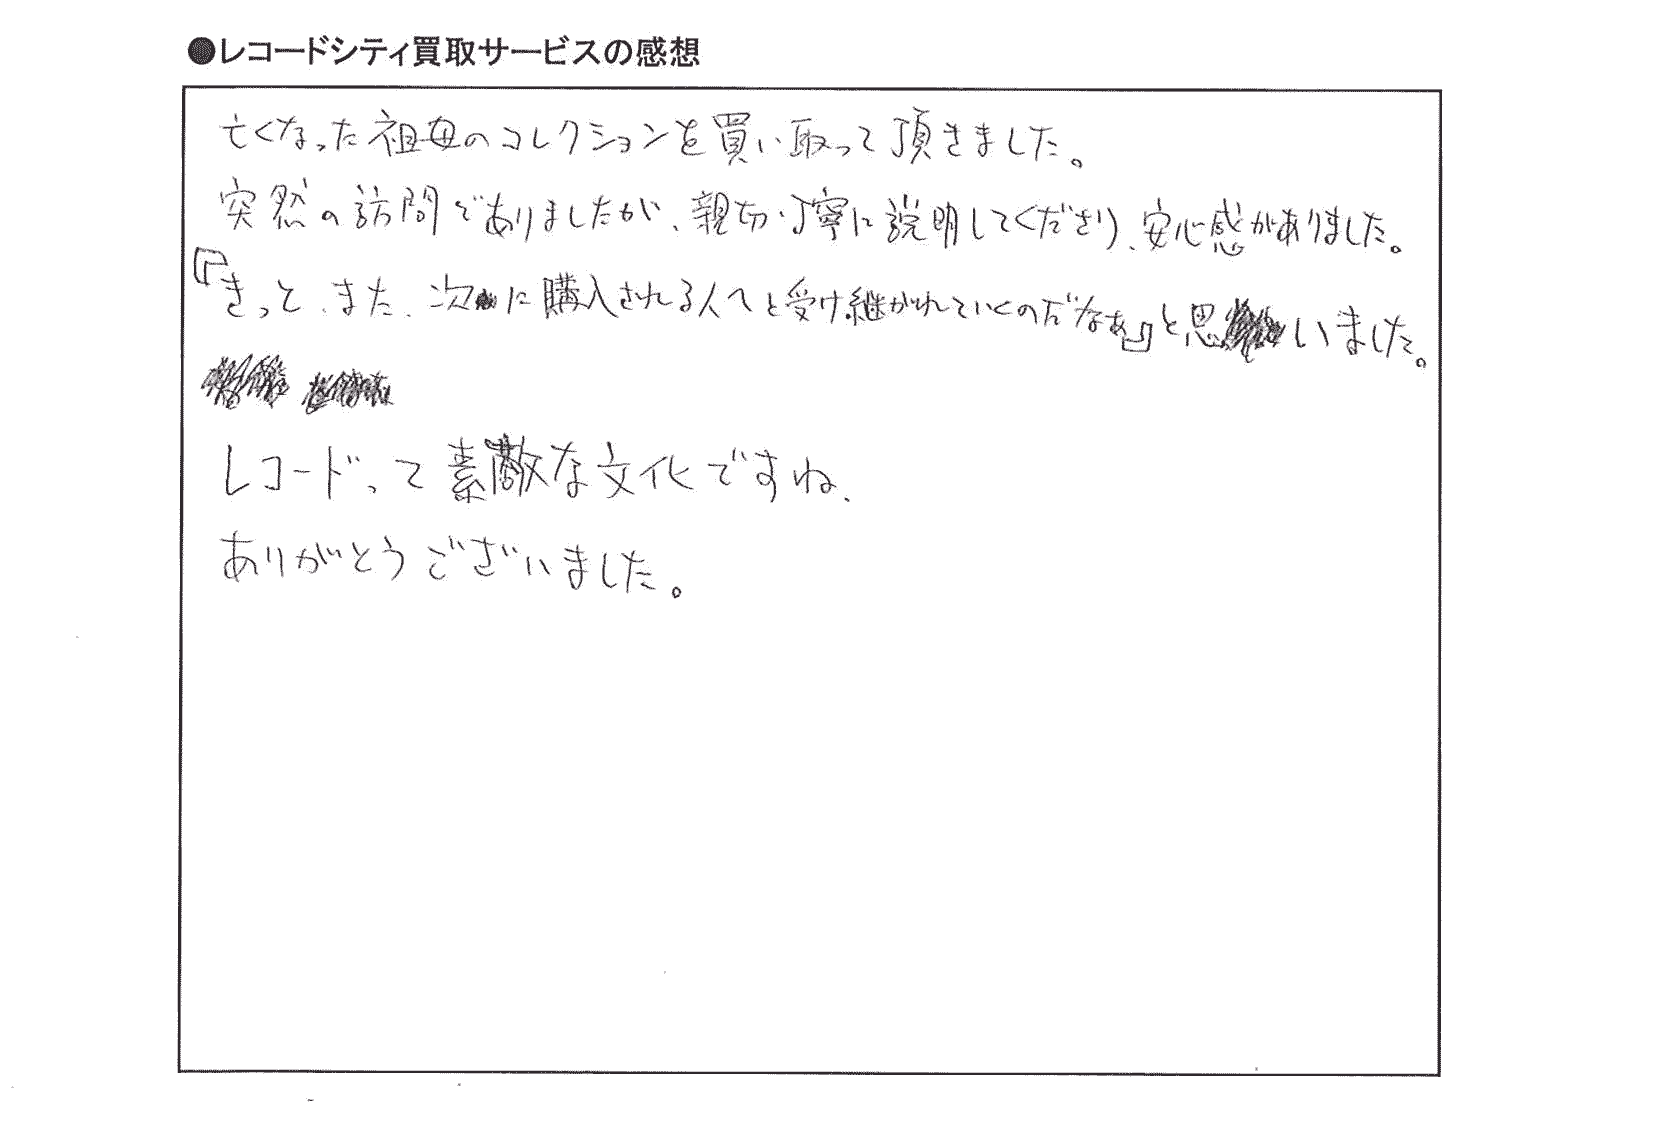 ●レコードシティ買取サービスの感想
亡くなった祖母のコレクションを買い取って頂きました。
突然の訪問でありましたが、親切・丁寧に説明してくださり、安心感がありました。
『きっと、また、次に購入される人へと受け継がれていくのだなぁ』と思いました。
レコードって素敵な文化ですね、
ありがとうございました。